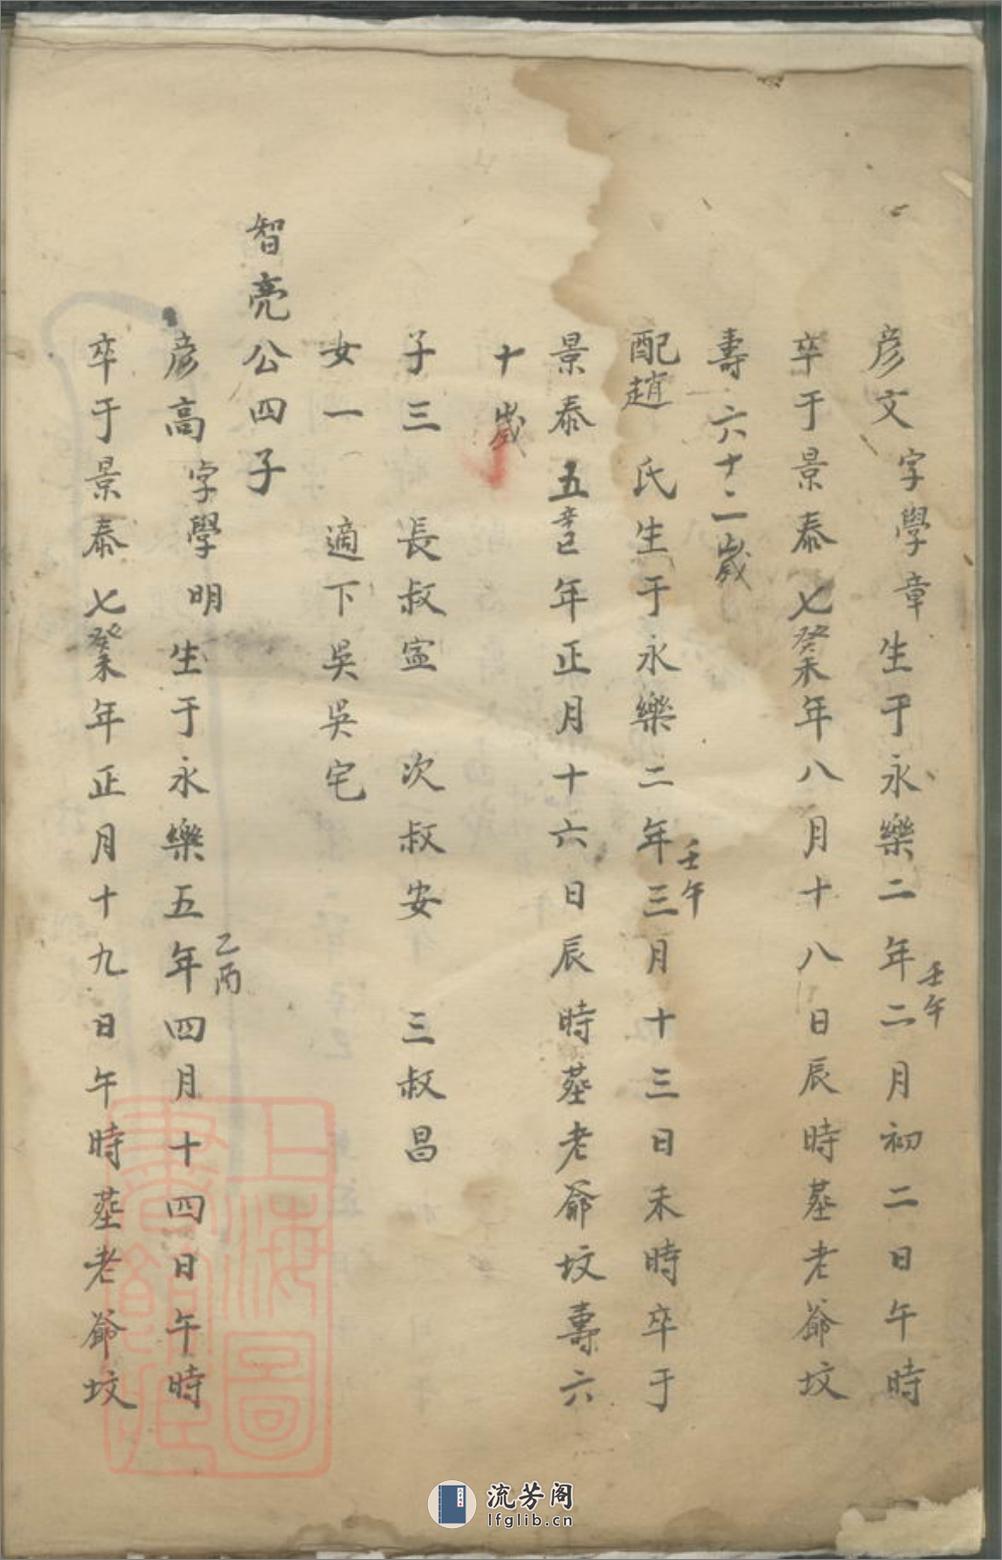 彦文字學章生于永樂二年壬午二月初二日午時
卒于景泰七癸未年八月十八日辰時塟老爺坟
壽六十二歲
配趙氏生于永樂二年壬午三月十三日未時卒于
景泰五辛巳年正月十六日辰時塟老爺坟壽六
十歲
子三 長叔寍 次叔安 三叔昌
女一 適下吳吳宅
智亮公四子
彦高字學明生于永樂五年乙丙四月十四日午時
卒于景泰七癸未年正月十九日午時塟老爺坟
上海圖書館藏
流芳阁
lfglib.cn